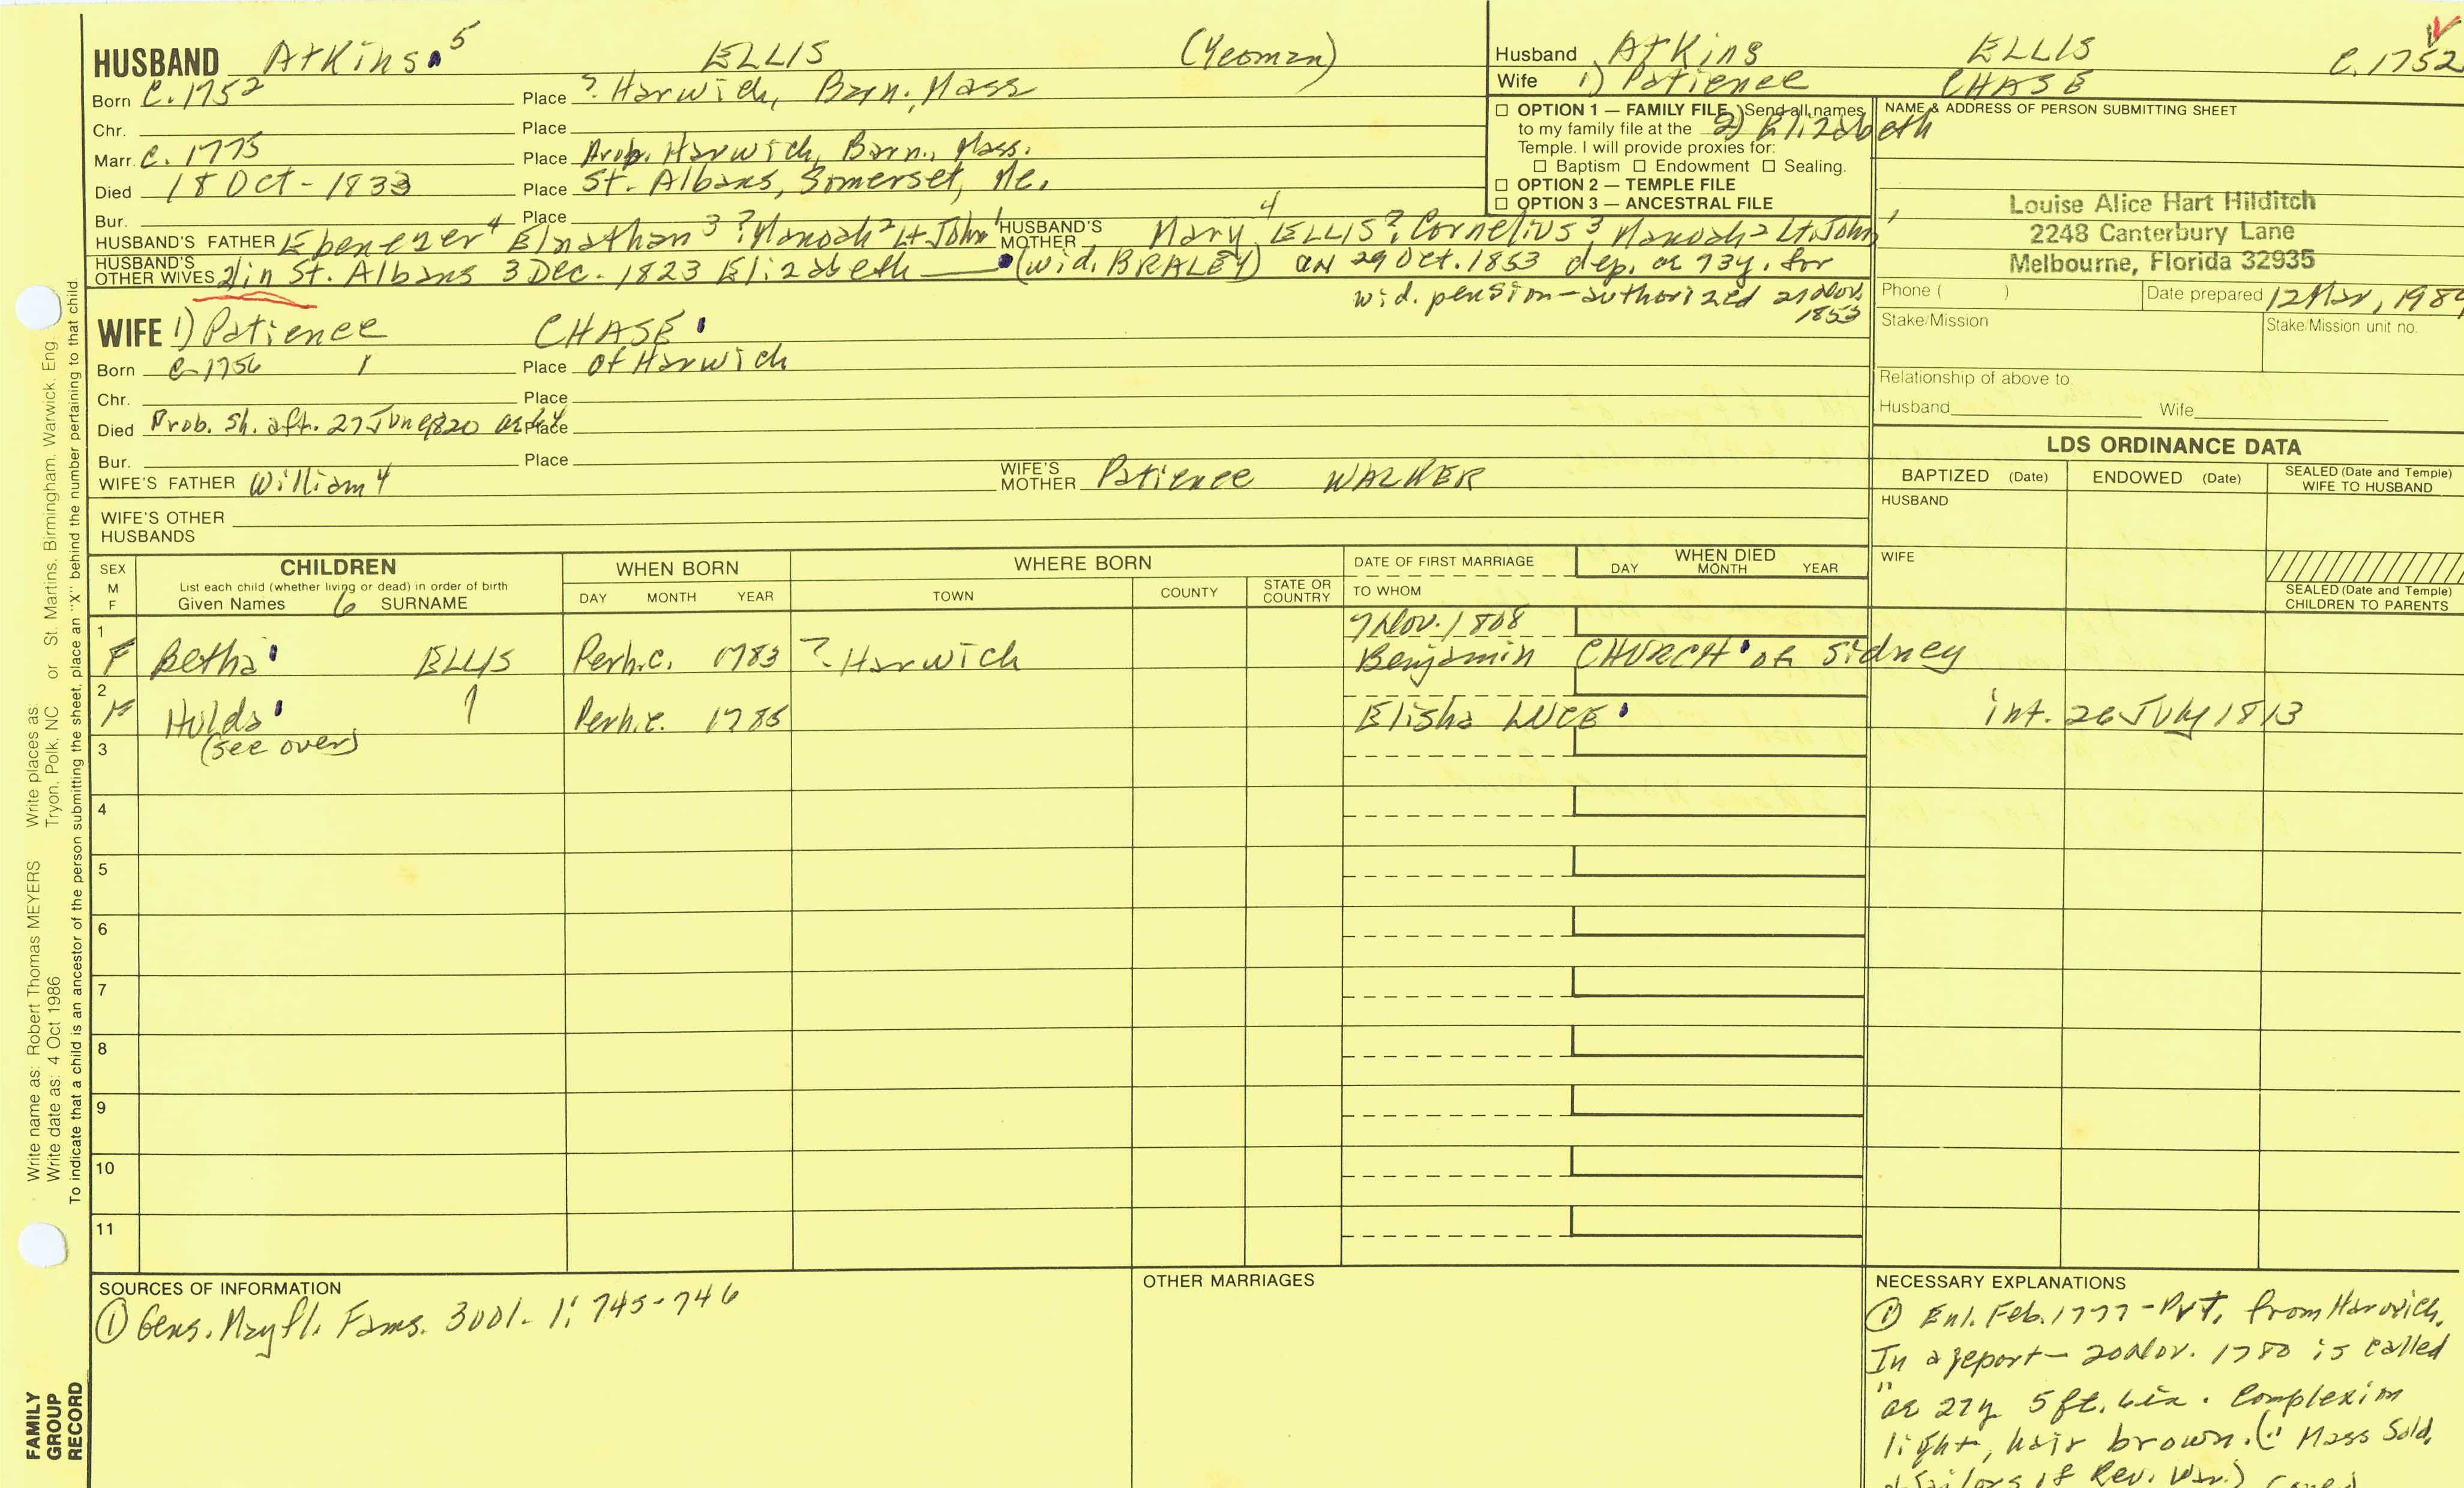 HUSBAND Atkins 5 ELLIS (Yeoman)
Born c. 1752 Place ? Harwich, Barn. Mass
Chr. Place
Marr. c. 1775 Place Prob. Harwich, Barn., Mass.
Died 18 Oct - 1833 Place St. Albans, Somerset, Me.
Bur. Place
HUSBAND'S FATHER Ebenezer 4 Elnathan 3 ? Manoah 2 Lt. John 1 HUSBAND'S MOTHER Mary 4 ELLIS ? Cornelius 3, Manoah 2 Lt. John 1
HUSBAND'S OTHER WIVES 2) in St. Albans 3 Dec. - 1823 Elizabeth (wid. BRALEY) on 29 Oct. 1853 dep. ae 73y. for
wid. pension - authorized 21 Nov. 1853
WIFE 1) Patience CHASE
Born c-1756 Place of Harwich
Chr. Place
Died Prob. Sh. aft. 27 June 1820 ae 64 Place
Bur. Place
WIFE'S FATHER William 4 WIFE'S MOTHER Patience WALKER
WIFE'S OTHER HUSBANDS
Husband Atkins ELLIS c. 1752
Wife 1) Patience CHASE
2) Elizabeth
☐ OPTION 1 — FAMILY FILE Send all names
to my family file at the
Temple. I will provide proxies for:
☐ Baptism ☐ Endowment ☐ Sealing.
☐ OPTION 2 — TEMPLE FILE
☐ OPTION 3 — ANCESTRAL FILE
NAME & ADDRESS OF PERSON SUBMITTING SHEET
Louise Alice Hart Hilditch
2248 Canterbury Lane
Melbourne, Florida 32935
Phone ( ) Date prepared 12 Mar, 198
Stake/Mission Stake/Mission unit no.
Relationship of above to
Husband Wife
LDS ORDINANCE DATA
BAPTIZED (Date) ENDOWED (Date) SEALED (Date and Temple) WIFE TO HUSBAND
HUSBAND
WIFE
SEALED (Date and Temple) CHILDREN TO PARENTS
SEX M F CHILDREN WHEN BORN WHERE BORN DATE OF FIRST MARRIAGE WHEN DIED
List each child (whether living or dead) in order of birth
Given Names 6 SURNAME DAY MONTH YEAR TOWN COUNTY STATE OR COUNTRY TO WHOM DAY MONTH YEAR
1 F Betha ELLIS Perh.c. 1783 ? Harwich 7 Nov. 1808 Benjamin CHURCH of Sidney
2 F Hulda Perh.c. 1785 Elisha LUCE int. 26 July 1813
3 (see over)
4
5
6
7
8
9
10
11
SOURCES OF INFORMATION
① Gens. Mayfl. Fams. 3001- 1: 745-746
OTHER MARRIAGES
NECESSARY EXPLANATIONS
① Enl. Feb. 1777 - Pvt. from Harwich.
In a report - 20 Nov. 1780 is called
"ae 27y 5 ft. 6in. Complexion
light, hair brown. (: Mass Sold.
& Sailors of Rev. War)
Write name as: Robert Thomas MEYERS Write places as: Tryon, Polk, NC or St. Martins, Birmingham, Warwick, Eng
Write date as: 4 Oct 1986
To indicate that a child is an ancestor of the person submitting the sheet, place an "X" behind the number pertaining to that child.
FAMILY
GROUP
RECORD